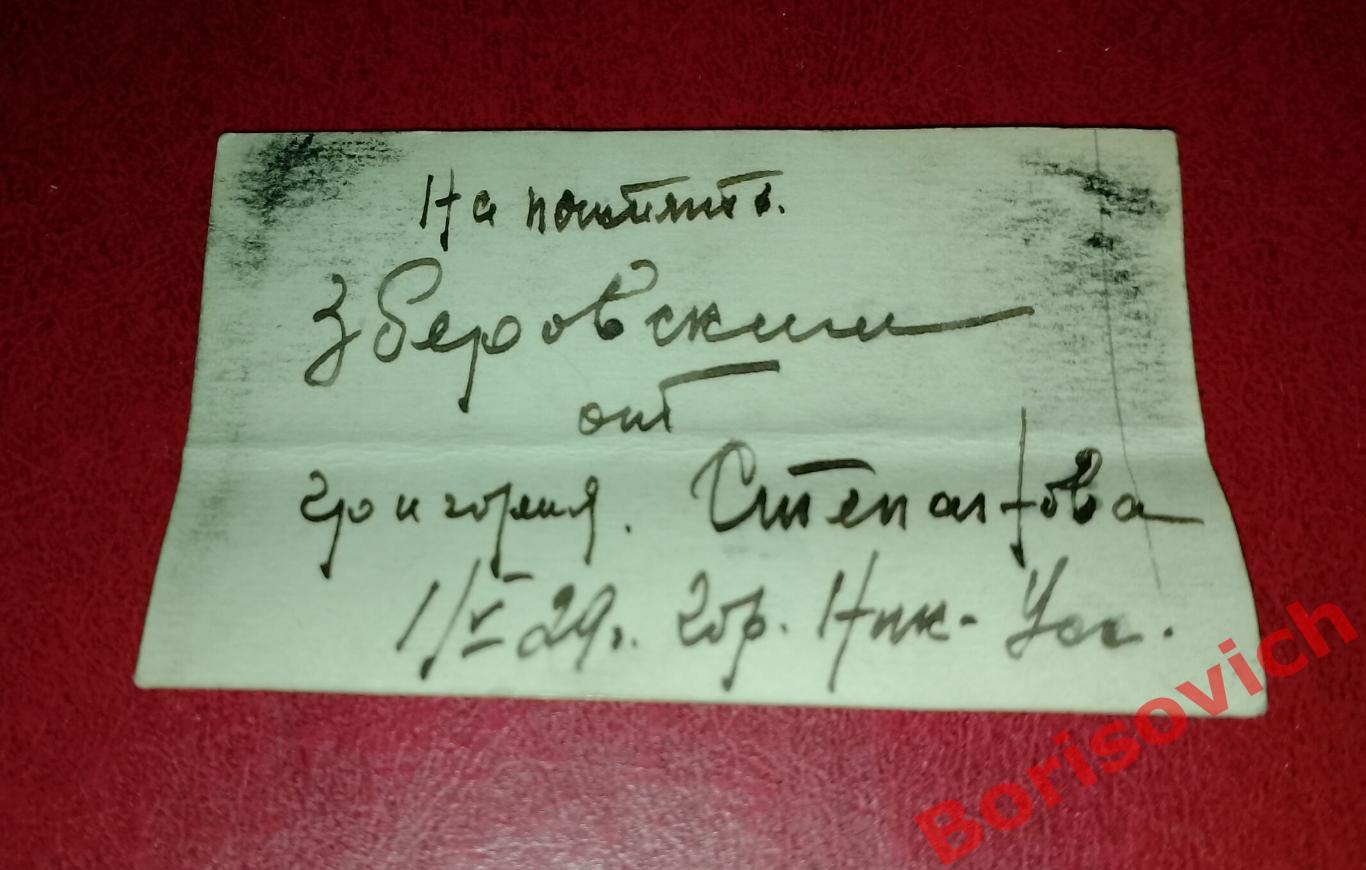 На память.
Зберовским
от
григория. Степанова
1/V 29г. гор. Ник-Усс.
Borisovich